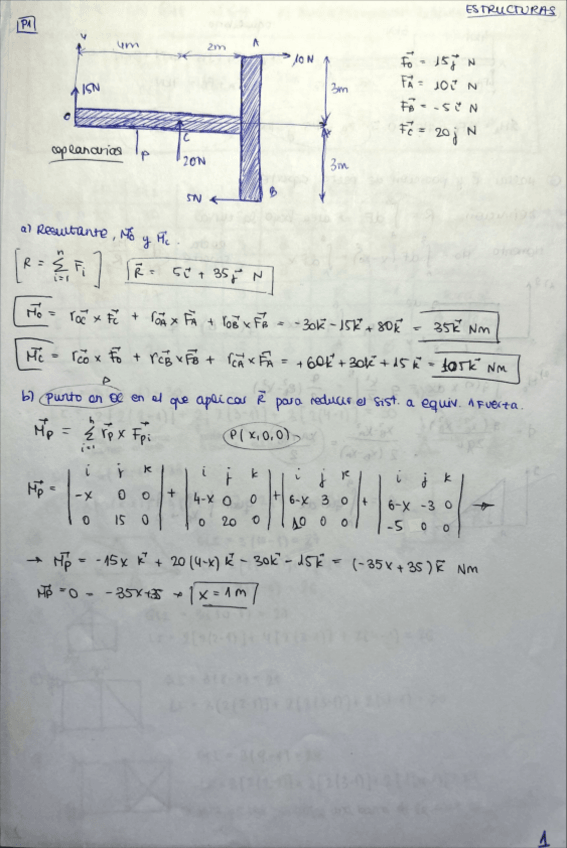 ESTRUCTURAS
P1
y
4m
2m
A
10N
15N
3m
O
C
coplanarias
P
20N
3m
5N
B
F⃗o = 15j⃗ N
F⃗A = 10i⃗ N
F⃗B = -5i⃗ N
F⃗c = 20j⃗ N
a) Resultante, M⃗o y M⃗c.
[R = Σ(i=1, n) Fi] R⃗ = 5i⃗ + 35j⃗ N
M⃗o = roc × F⃗c + roA × F⃗A + roB × F⃗B = -30k⃗ - 15k⃗ + 80k⃗ = 35k⃗ Nm
M⃗c = rco × F⃗o + rcB × F⃗B + rcA × F⃗A = +60k⃗ + 30k⃗ + 15k⃗ = 105k⃗ Nm
P
b) Punto en OC en el que aplicar R⃗ para reducir el sist. a equiv. 1 Fuerza.
M⃗p = Σ(i=1, n) r⃗p × F⃗pi P(x,0,0)
M⃗p = |i j k; -x 0 0; 0 15 0| + |i j k; 4-x 0 0; 0 20 0| + |i j k; 6-x 3 0; 10 0 0| + |i j k; 6-x -3 0; -5 0 0| →
→ M⃗p = -15x k⃗ + 20(4-x)k⃗ - 30k⃗ - 15k⃗ = (-35x + 35)k⃗ Nm
M⃗p = 0 = -35x+35 → x = 1m
1